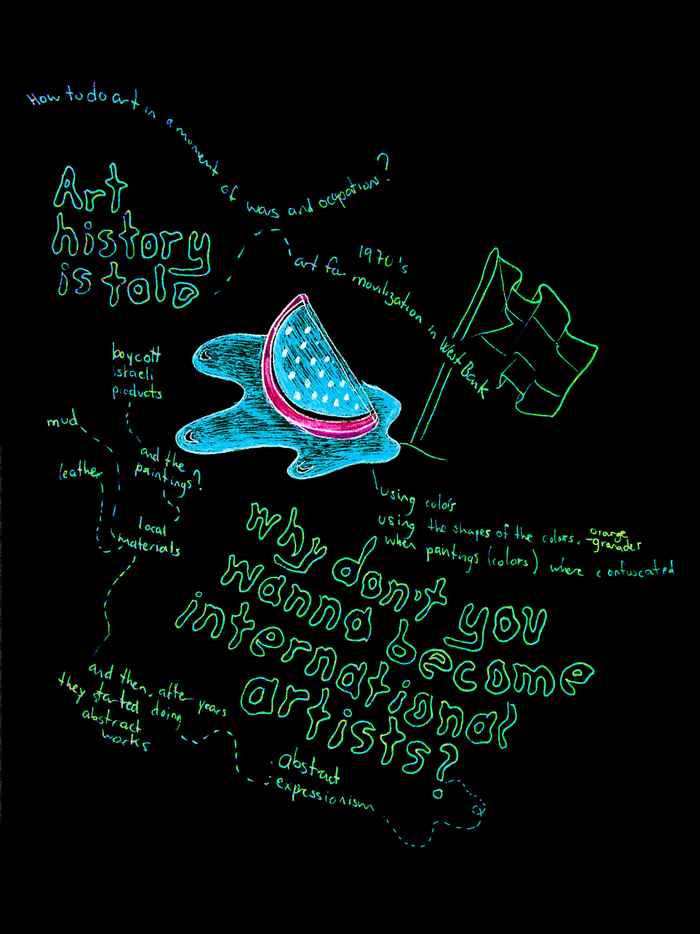 How to do art in a moment of wars and ocupation?
Art
history
is told
1970's
art for movilization in West Bank
boycott
israeli
products
mud
leather
and the
paintings?
local
materials
using colors
using the shapes of the colors. orange
granades
when pantings (colors) where confuscated
why don't you
wanna become
international
artists?
and then, after years
they started doing
abstract
works
abstract
expressionism